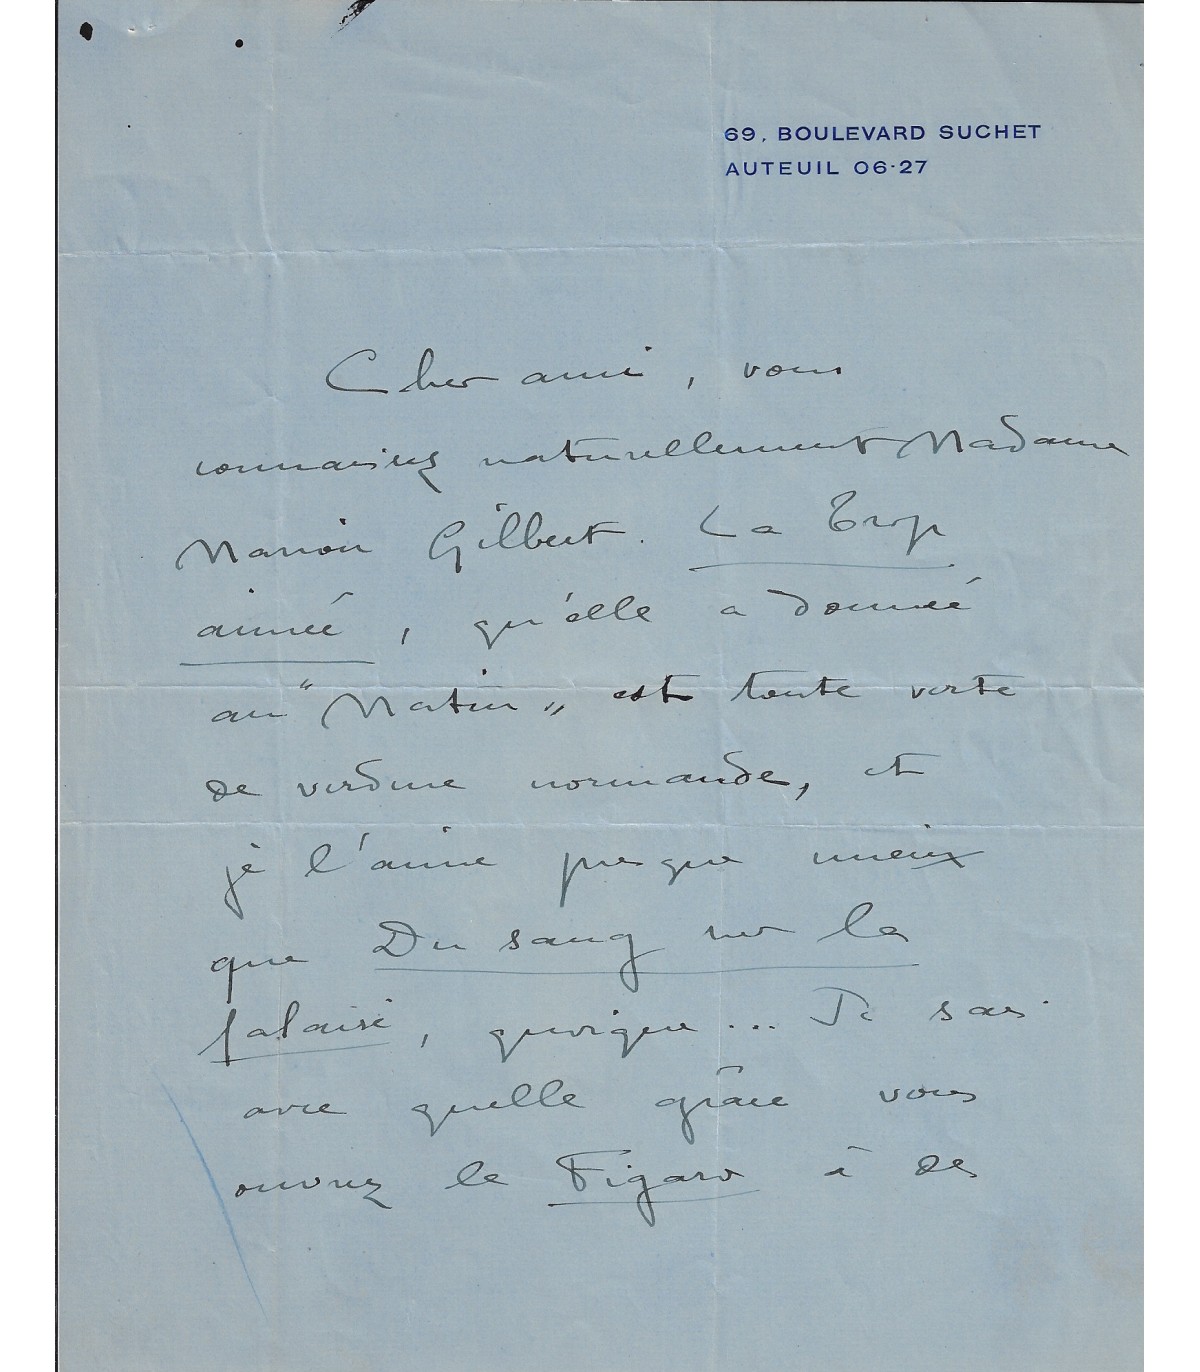 69, BOULEVARD SUCHET
AUTEUIL 06·27
Cher ami, vous
connaissez naturellement Madame
Marion Gilbert. La Trop
aimée, qu'elle a donnée
au "Matin" est toute verte
de verdure normande, et
je l'aime presque mieux
que Du sang sur la
falaise, quoique... Je sais
avec quelle grâce vous
ouvrez le Figaro à des